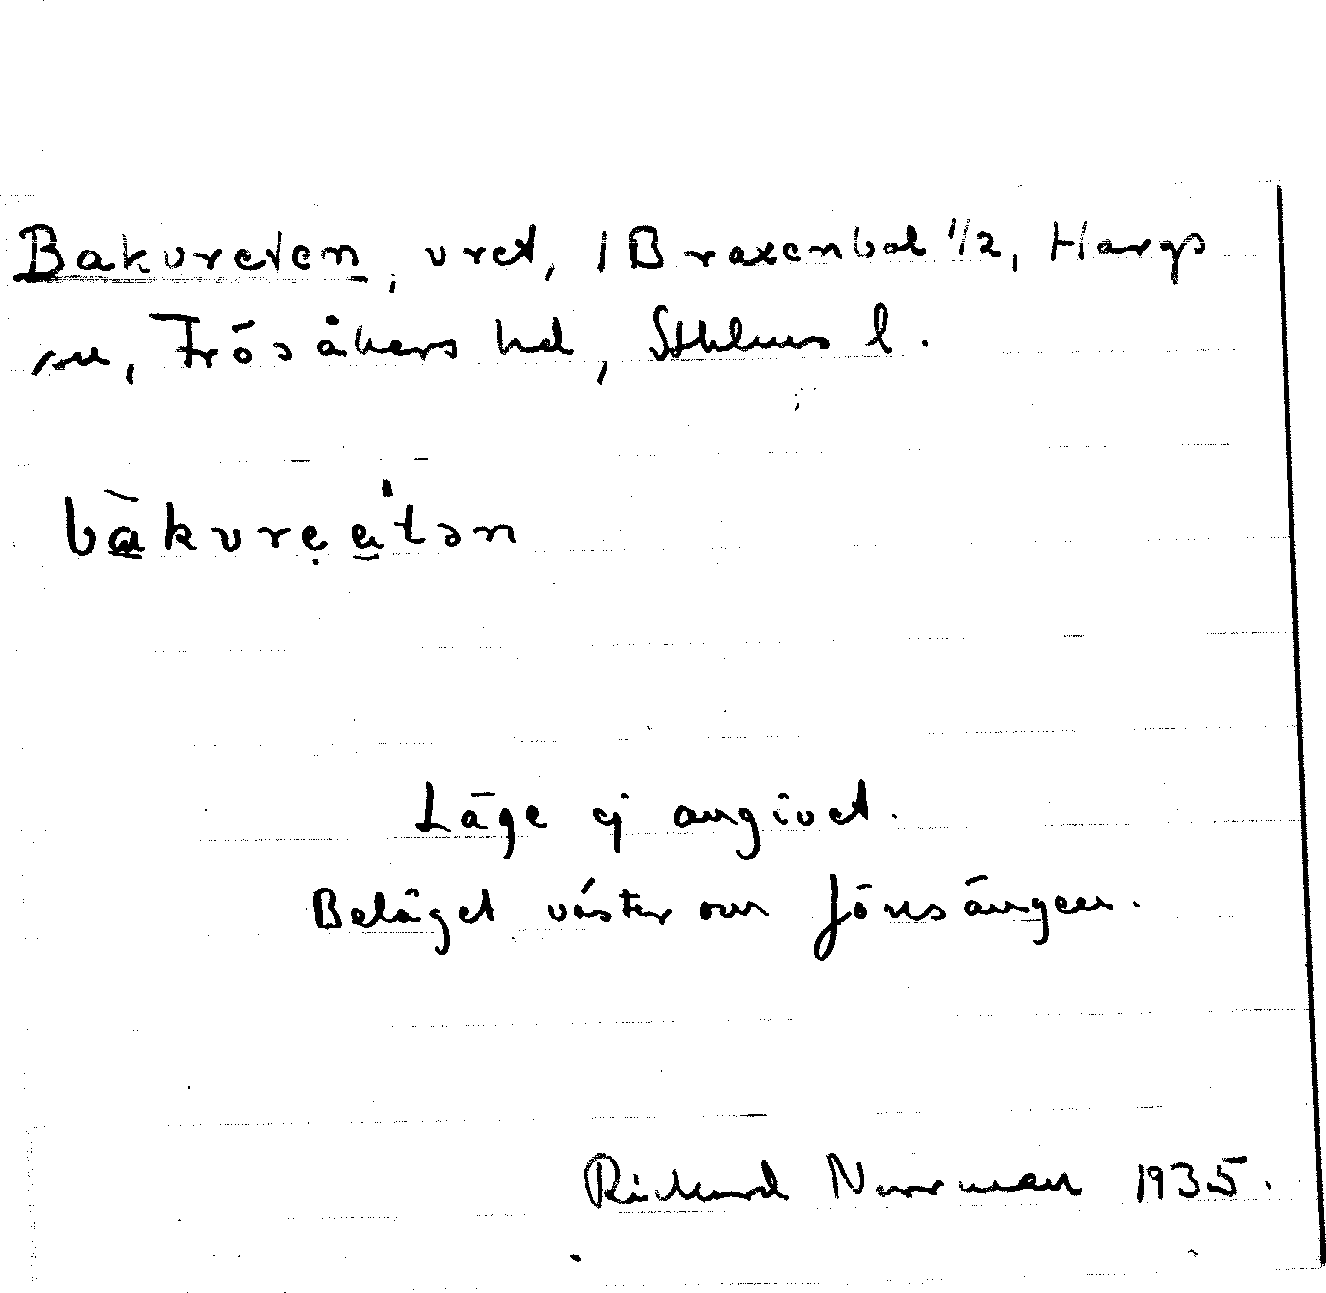 Bakvreten, vret, i Braxenbol 1/2, Hargs
sn, Frösåkers hd, Sthlms l.
bàkvrẹa̱'tən
Läge ej angivet.
Beläget väster om Jönsängen.
Rickard Norrman 1935.